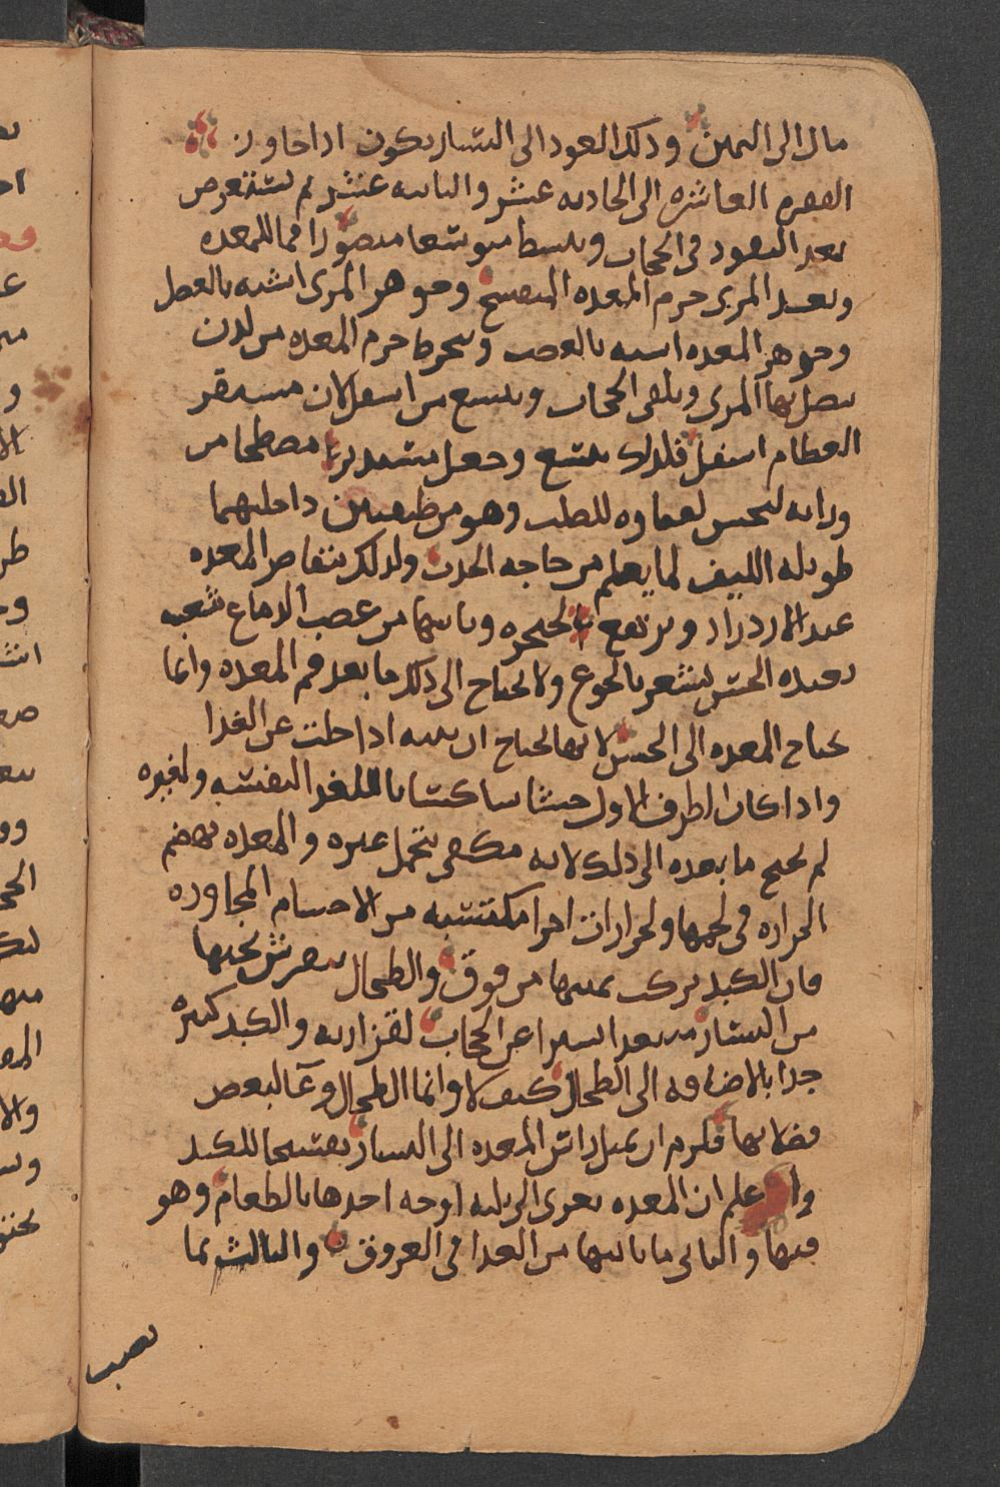 مال الى اليمين وذلك العود الى اليسار يكون اذا جاوز
الفقره العاشره الى الحاديه عشر والثانيه عشر ثم يستعرض
بعد النفود فى الحجاب وينبسط متوسعا متصورا فما للمعده
وبعد المرى جرم المعده المنفسح وجوهر المرى اشبه بالعضل
وجوهر المعده اشبه بالعصب وينخرط جرم المعده من لدن
يتصل بها المرى ويلقى الحجاب ويتسع من اسفل لان مستقر
الطعام اسفل فلذلك يتسع وجعل مستديرا مسطحا من
ورائه ليحسن لقاوه للصلب وهو من طبقتين داخليهما
طويله الليف لما يعلم من حاجه الجذب ولذلك تتقاصر المعده
عند الازدراد وترتفع الحنجره وياتيها من عصب الدماغ شعبه
تفيده الحس ليشعر بالجوع ولا يحتاج الى ذلك ما بعد فم المعده وانما
تحتاج المعده الى الحس لانها تحتاج ان تنبه اذا خلت عن الغذا
واذا كان الطرف الاول حساسا كسابا للغذا لنفسه ولغيره
لم يحتج ما بعده الى ذلك لانه مكفى بتحمل غيره والمعده تهضم
الحراره فى لحمها ولحرارات اخرا مكتسبه من الاجسام المجاوره
فان الكبد تركب يمينها من فوق والطحال ينفرش تحتها
من اليسار متباعدا يسيرا عن الحجاب لقذارته والكبد كبيره
جدا بالاضافه الى الطحال كيف لا وانما الطحال وعآ لبعض
فضلاتها فلزم ان يميل راس المعده الى اليسار تفسيحا للكبد
واعلم ان المعده تغذى الى ثلثه اوجه احدها بالطعام وهو
فيها والثانى ما ياتيها من الغذا فى العروق والثالث بما